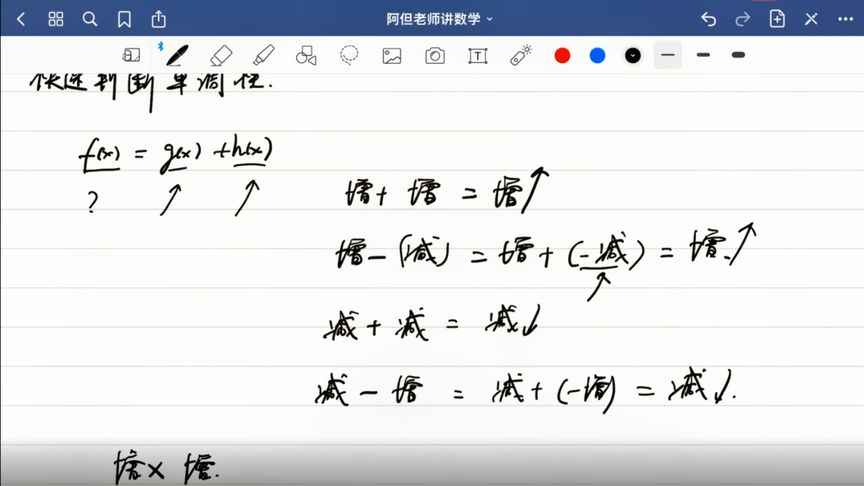 阿但老师讲数学
快速判断单调性.
f(x) = g(x) + h(x)
?
增 + 增 = 增↑
增 - (减) = 增 + (-减) = 增.↑
减 + 减 = 减↓
减 - 增 = 减 + (-增) = 减↓.
增 × 增.